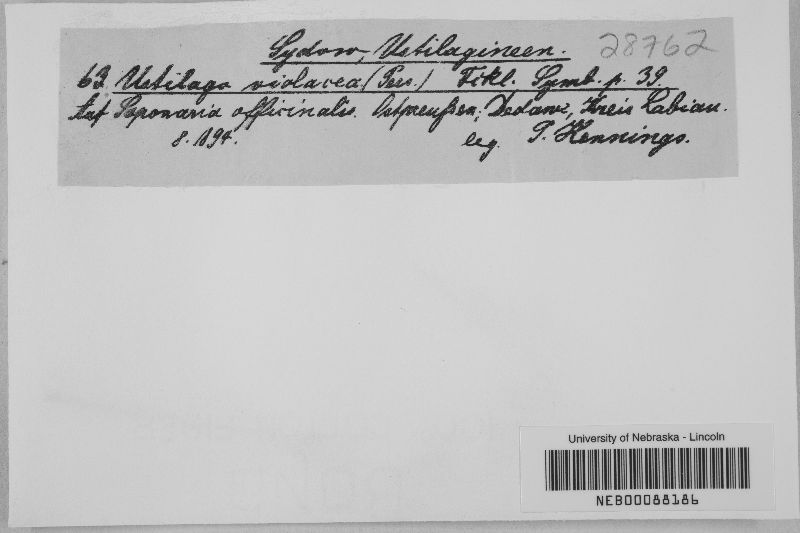 Sydow, Ustilagineen. 28762
63 Ustilago violacea (Pers.) Fckl. Symb. p. 39
Auf Saponaria officinalis. Ostpreußen: Kreis Labiau.
8. 1894.
leg. P. Hennings.
University of Nebraska - Lincoln
NEB00088186